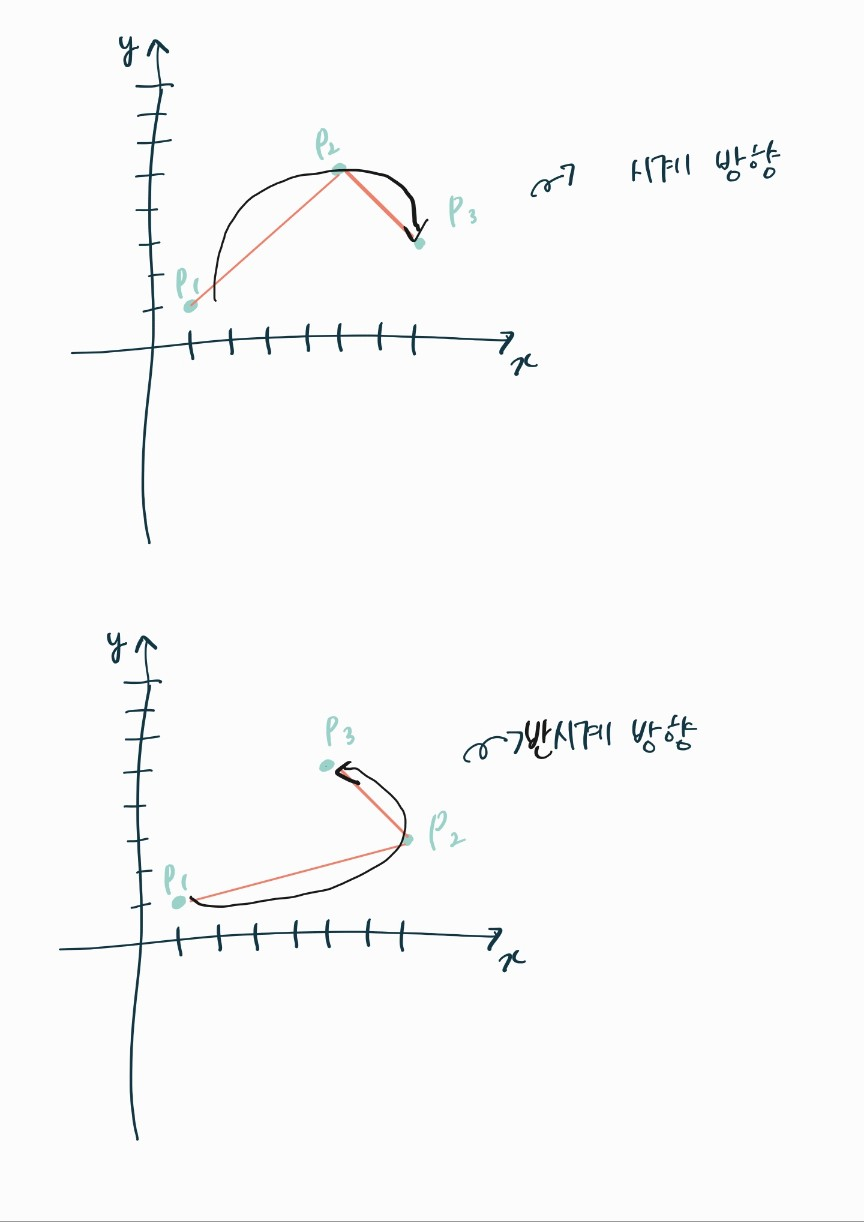 y
P2
시계 방향
P3
P1
x
y
P3
반시계 방향
P2
P1
x